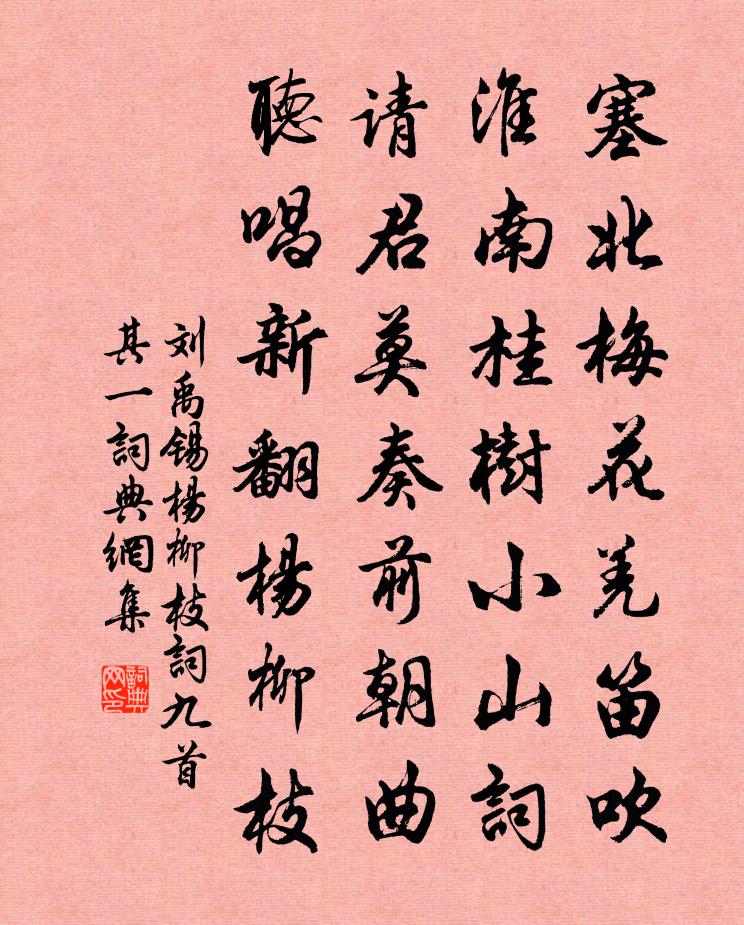 塞北梅花羌笛吹
淮南桂樹小山詞
请君莫奏前朝曲
聽唱新翻楊柳枝
刘禹锡楊柳枝詞九首
其一詞典網集
詞典网印